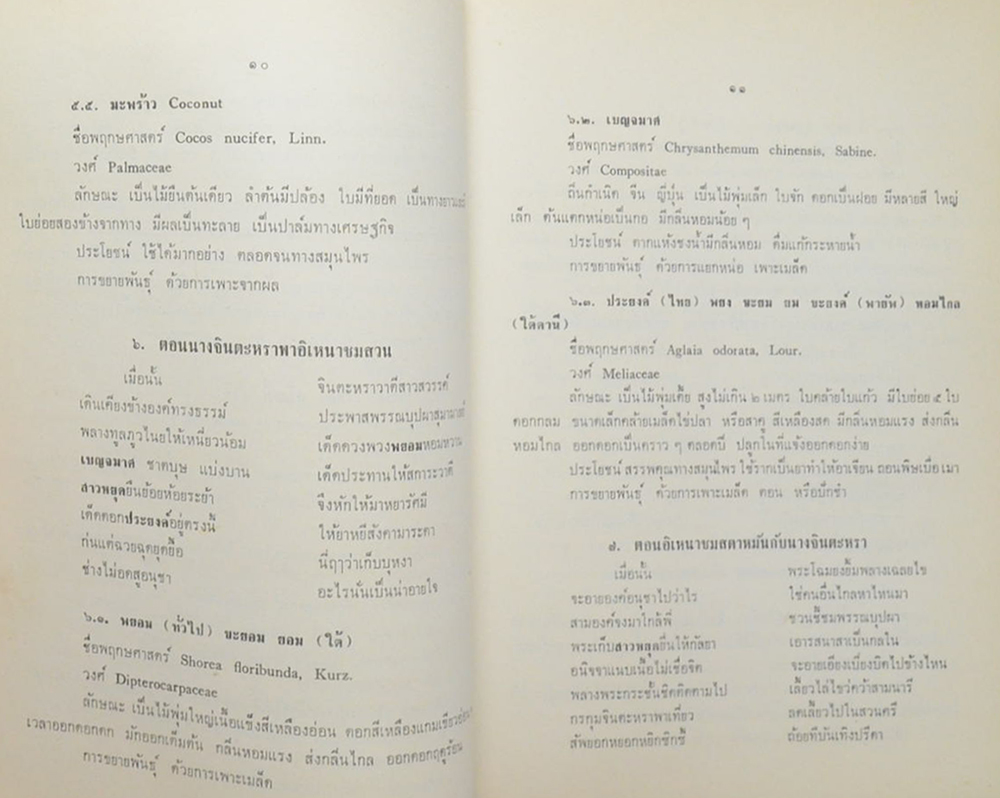 ๑๐
๕.๕. มะพร้าว Coconut
ชื่อพฤกษศาสตร์ Cocos nucifer, Linn.
วงศ์ Palmaceae
ลักษณะ เป็นไม้ยืนต้นเดียว ลำต้นมีปล้อง ใบมีที่ยอด เป็นทางยาวและมี
ใบย่อยสองข้างจากทาง มีผลเป็นทะลาย เป็นปาล์มทางเศรษฐกิจ
ประโยชน์ ใช้ได้มากอย่าง ตลอดจนทางสมุนไพร
การขยายพันธุ์ ด้วยการเพาะจากผล
๖. ตอนนางจินตะหราพาอิเหนาชมสวน
เมื่อนั้น จินตะหราวาตีสาวสวรรค์
เดินเคียงข้างองค์ทรงธรรม์ ประพาสพรรณบุปผาสุมามาลย์
พลางทูลภูวไนยให้เหนี่ยวน้อม เด็ดดวงพวงพยอมหอมหวาน
เบญจมาศ ชาตบุษ แบ่งบาน เด็ดประทานให้สการะวาตี
สาวหยุดยื่นย้อยห้อยระย้า จึงหักให้มาหยารัศมี
เด็ดดอกประยงค์อยู่ตรงนี้ ให้ยาหยีสังคามาระตา
ก่นแต่ฉวยฉุดยุดยื้อ นี่ฤๅว่าเก็บบุหงา
ช่างไม่อดสูอนุชา อะไรนั่นเป็นน่าอายใจ
๖.๑. พยอม (ทั่วไป) ขะยอม ยอม (ใต้)
ชื่อพฤกษศาสตร์ Shorea floribunda, Kurz.
วงศ์ Dipterocarpaceae
ลักษณะ เป็นไม้พุ่มใหญ่เนื้อแข็งสีเหลืองอ่อน ดอกสีเหลืองแกมเขียวอ่อน
เวลาออกดอกดก มักออกเต็มต้น กลิ่นหอมแรง ส่งกลิ่นไกล ออกดอกฤดูร้อน
การขยายพันธุ์ ด้วยการเพาะเมล็ด
๑๑
๖.๒. เบญจมาศ
ชื่อพฤกษศาสตร์ Chrysanthemum chinensis, Sabine.
วงศ์ Compositae
ถิ่นกำเนิด จีน ญี่ปุ่น เป็นไม้พุ่มเล็ก ใบจัก ดอกเป็นฝอย มีหลายสี ใหญ่
เล็ก ต้นแตกหน่อเป็นกอ มีกลิ่นหอมน้อย ๆ
ประโยชน์ ตากแห้งชงน้ำมีกลิ่นหอม ดื่มแก้กระหายน้ำ
การขยายพันธุ์ ด้วยการแยกหน่อ เพาะเมล็ด
๖.๓. ประยงค์ (ไทย) พยง ขะยม ยม ขะยงค์ (พายัพ) หอมไกล
(ใต้ตานี)
ชื่อพฤกษศาสตร์ Aglaia odorata, Lour.
วงศ์ Meliaceae
ลักษณะ เป็นไม้พุ่มเตี้ย สูงไม่เกิน ๒ เมตร ใบคล้ายใบแก้ว มีใบย่อย ๕ ใบ
ดอกกลม ขนาดเล็กคล้ายเมล็ดไข่ปลา หรือสาคู สีเหลืองสด มีกลิ่นหอมแรง ส่งกลิ่น
หอมไกล ออกดอกเป็นคราว ๆ ตลอดปี ปลูกในที่แจ้งออกดอกง่าย
ประโยชน์ สรรพคุณทางสมุนไพร ใช้รากเป็นยาทำให้อาเจียน ถอนพิษเบื่อเมา
การขยายพันธุ์ ด้วยการเพาะเมล็ด ตอน หรือปักชำ
๗. ตอนอิเหนาชมสตาหมันกับนางจินตะหรา
เมื่อนั้น พระโฉมยงยิ้มพลางเฉลยไข
จะอายองค์อนุชาไปว่าไร ใช่คนอื่นไกลหาไหนมา
สามองค์จงมาใกล้พี่ ชวนชี้ชมพรรณบุปผา
พระเก็บสาวหยุดยื่นให้กัลยา เอารสนาสาเป็นกลใน
อนิจจาแนบเนื้อไม่เชื่อจิต จะอายเอียงเบี่ยงบิดไปข้างไหน
พลางพระกระชั้นชิดติดตามไป เลี้ยวไล่ไขว่คว้าสามนารี
กรกุมจินตะหราพาเที่ยว ลดเลี้ยวไปในสวนศรี
สัพยอกหยอกหยิกซิกซี้ ถ้อยทีบันเทิงปรีดา